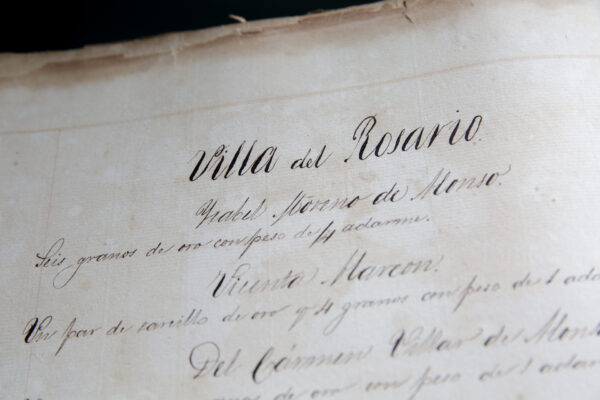 Villa del Rosario.
Ysabel Moreno de Alonso.
Seis granos de oro con peso de 1/4 adarme.
Vicenta Marcon.
Un par de zarcillo de oro y 4 granos con peso de 1 ada
Del Cármen Villar de Mont
nos de oro con peso de 1 adar